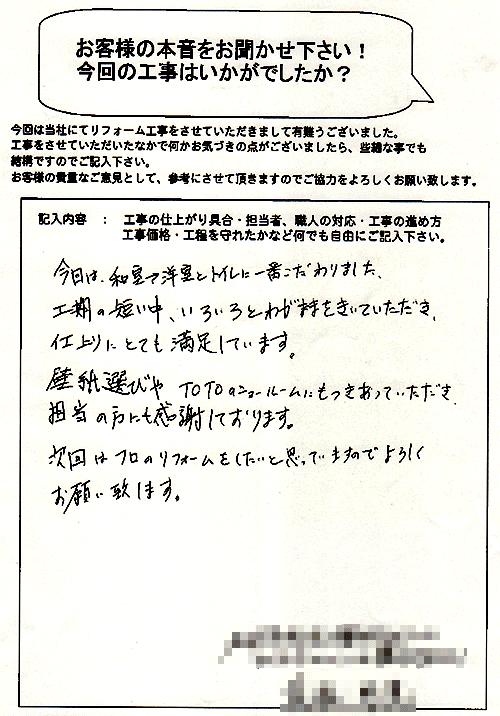 お客様の本音をお聞かせ下さい！
今回の工事はいかがでしたか？
今回は当社にてリフォーム工事をさせていただきまして有難うございました。
工事をさせていただいたなかで何かお気づきの点がございましたら、些細な事でも
結構ですのでご記入下さい。
お客様の貴重なご意見として、参考にさせて頂きますのでご協力をよろしくお願い致します。
記入内容 ： 工事の仕上がり具合・担当者、職人の対応・工事の進め方
工事価格・工程を守れたかなど何でも自由にご記入下さい。
今日は、和室→洋室とトイレに一番こだわりました、
工期の短い中、いろいろとわがままをきいていただき、
仕上りにとても満足しています。
壁紙選びや TOTOのショールームにもつきあっていただき
担当の方にも感謝しております。
次回はフロのリフォームをしたいと思っていますのでよろしく
お願い致します。